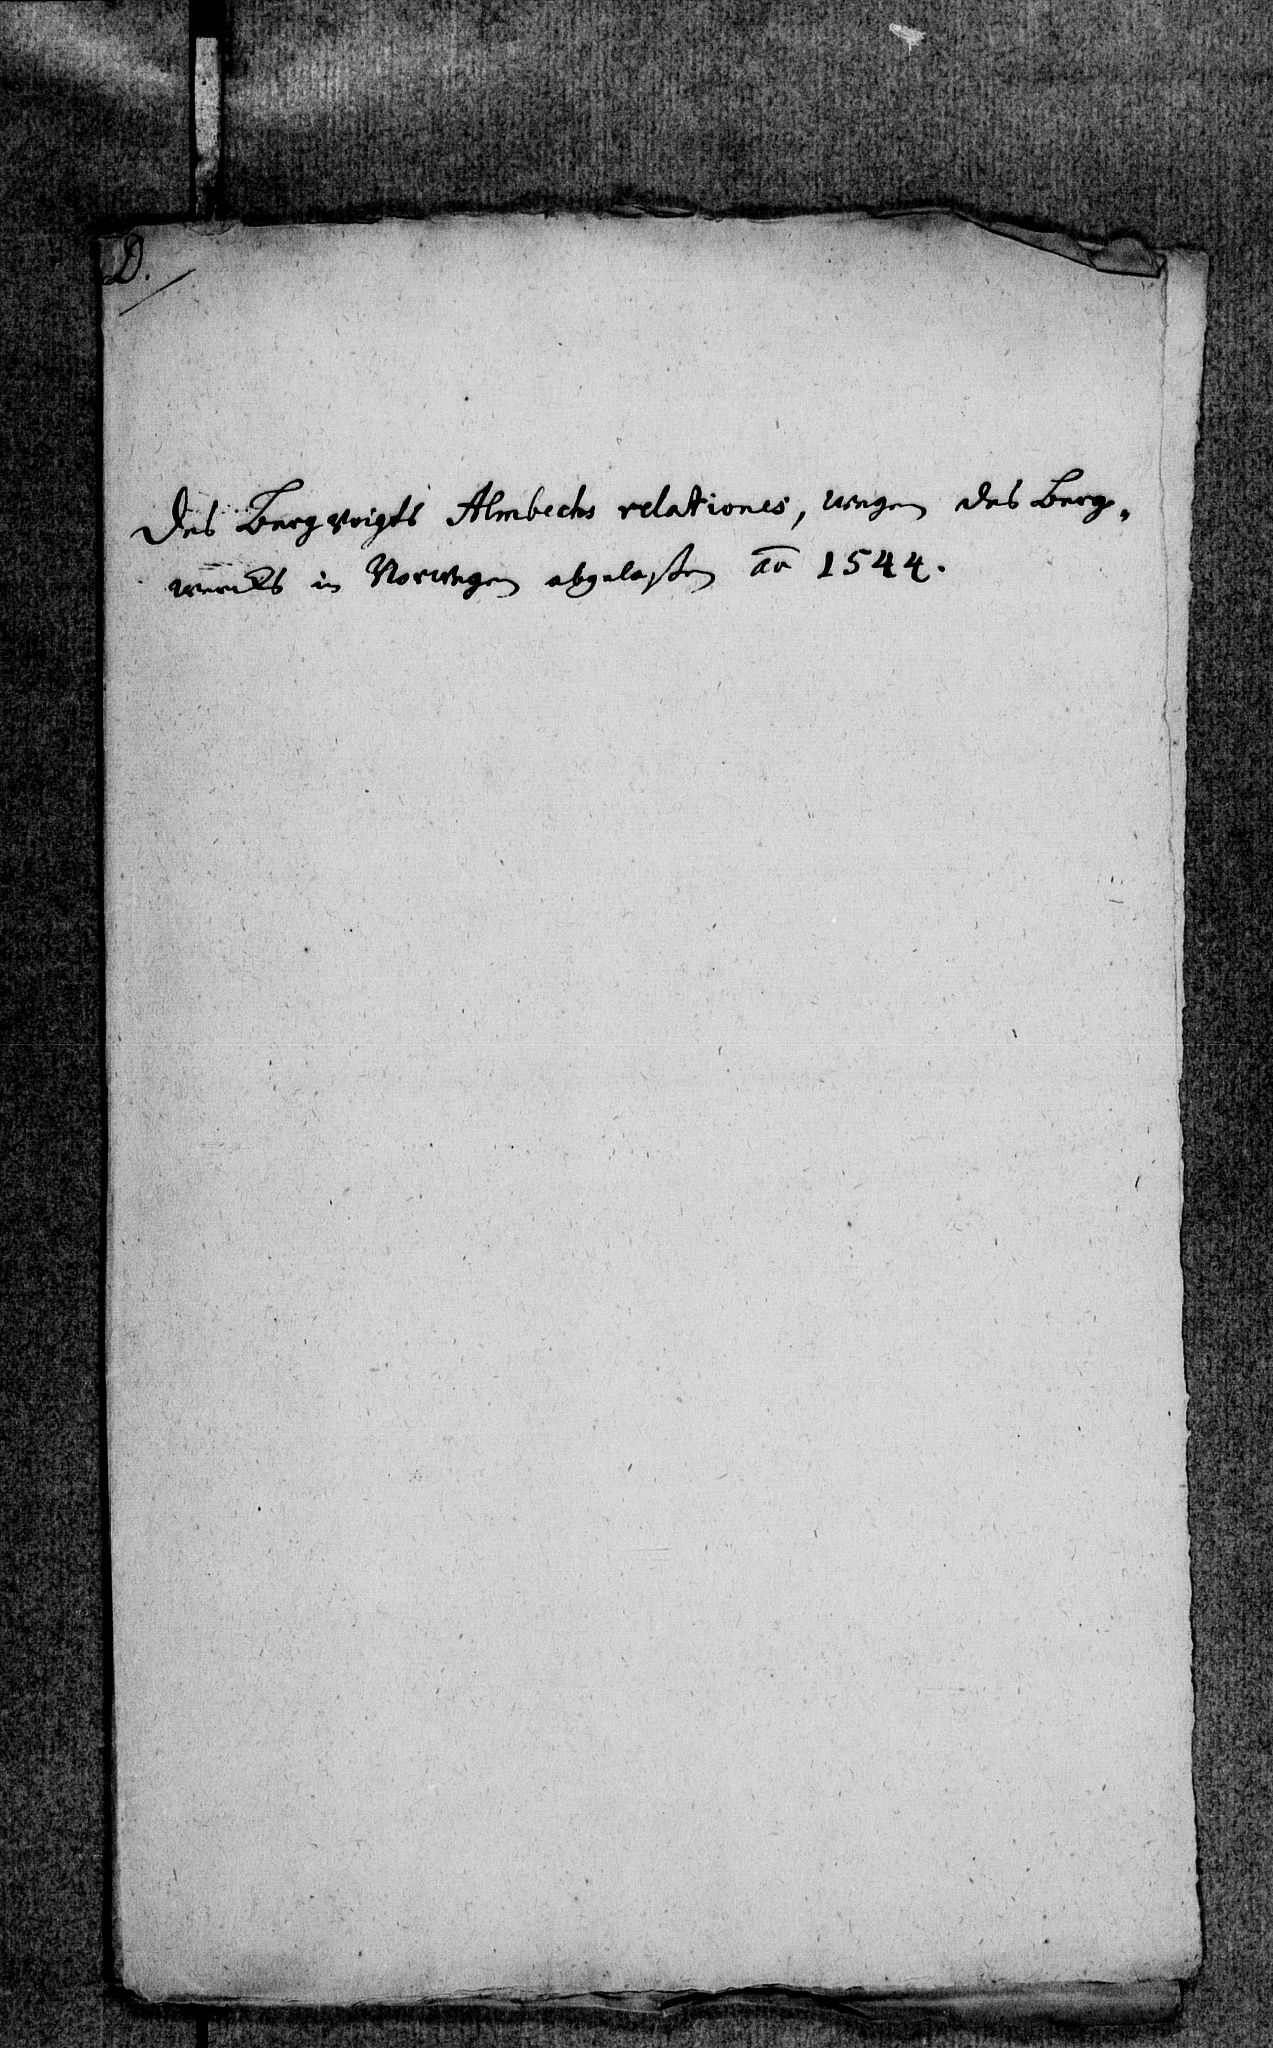 D.
Des Bergvoigts Almbechs relationes, wegen des Berg„
wercks in Norwegen abgelaßen ao 1544.